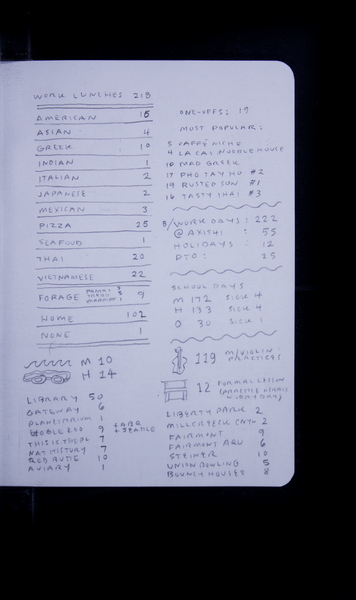 WORK LUNCHES 218
AMERICAN 15
ASIAN 4
GREEK 10
INDIAN 1
ITALIAN 2
JAPANESE 2
MEXICAN 3
PIZZA 25
SEAFOOD 1
THAI 20
VIETNAMESE 22
FORAGE 9
HOME 102
NONE 1
M 10
H 14
LIBRARY 50
GATEWAY 6
PLANETARIUM 1
9
THIS IS THE PL 7
NAT HISTORY 7
RED BUTTE 10
AVIARY 1
ONE-OFFS: 19
MOST POPULAR:
5 CAFFÉ NICHE
4 LA CAI NOODLE HOUSE
10 MAD GREEK
17 PHO TAY HO #2
19 RUSTED SUN #1
16 TASTY THAI #3
WORK DAYS: 222
@ AXISHI: 55
HOLIDAYS: 12
PTO: 25
SCHOOL DAYS
M 172 SICK 4
H 173 SICK 4
O 30 SICK 1
119 M/VIOLIN PRACTICES
12 FORMAL LESSON
LIBERTY PARK 2
MILLCREEK CNTN 2
FAIRMONT 9
FAIRMONT AQU 6
STEINER 10
UNION BOWLING 5
BOUNCY HOUSES 8